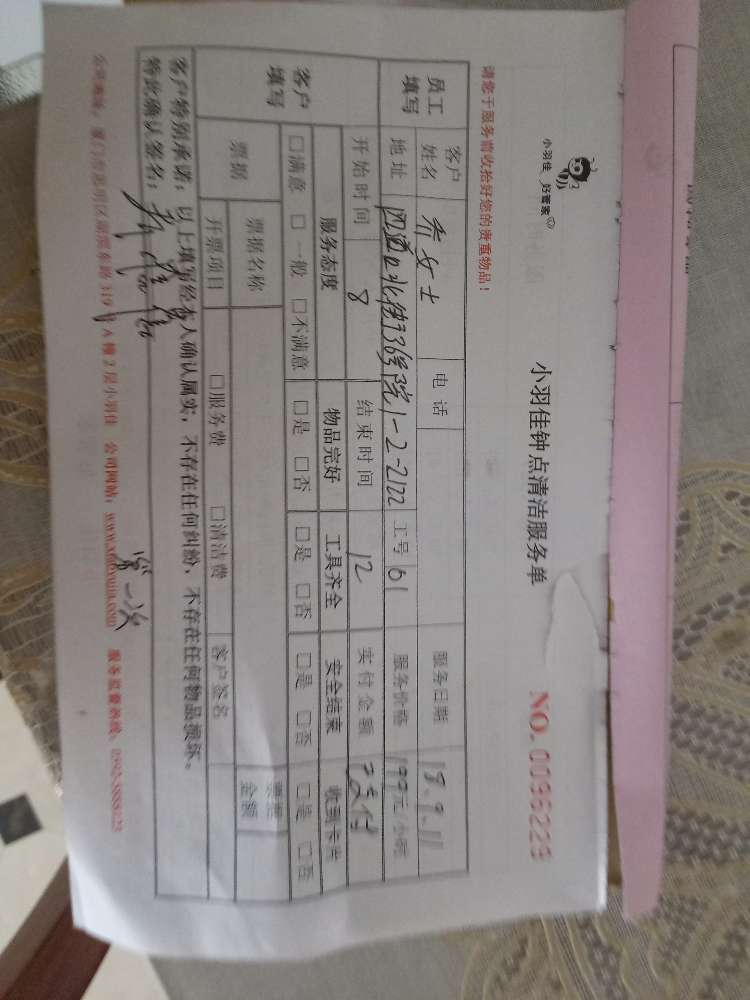 小羽佳 好管家
小羽佳钟点清洁服务单
NO. 0095229
请您于服务前收拾好您的贵重物品！
员工填写
客户姓名 乔女士 电话 服务日期 18.9.11
地址 四道口北街36号院1-2-2122 工号 61 服务价格 199元/小时
开始时间 8 结束时间 12 实付金额 已支付
客户填写
服务态度 物品完好 工具齐全 安全结束 收到卡片
□满意 □一般 □不满意 □是 □否 □是 □否 □是 □否 □是 □否
票据 票据名称 票据金额
开票项目 □服务费 □清洁费 客户签名
客户特别承诺：以上填写经本人确认属实，不存在任何纠纷，不存在任何物品损坏。
特此确认签名：
第一次
公司网站：www.xiaoyujia.com 服务监督热线：0592-5888123